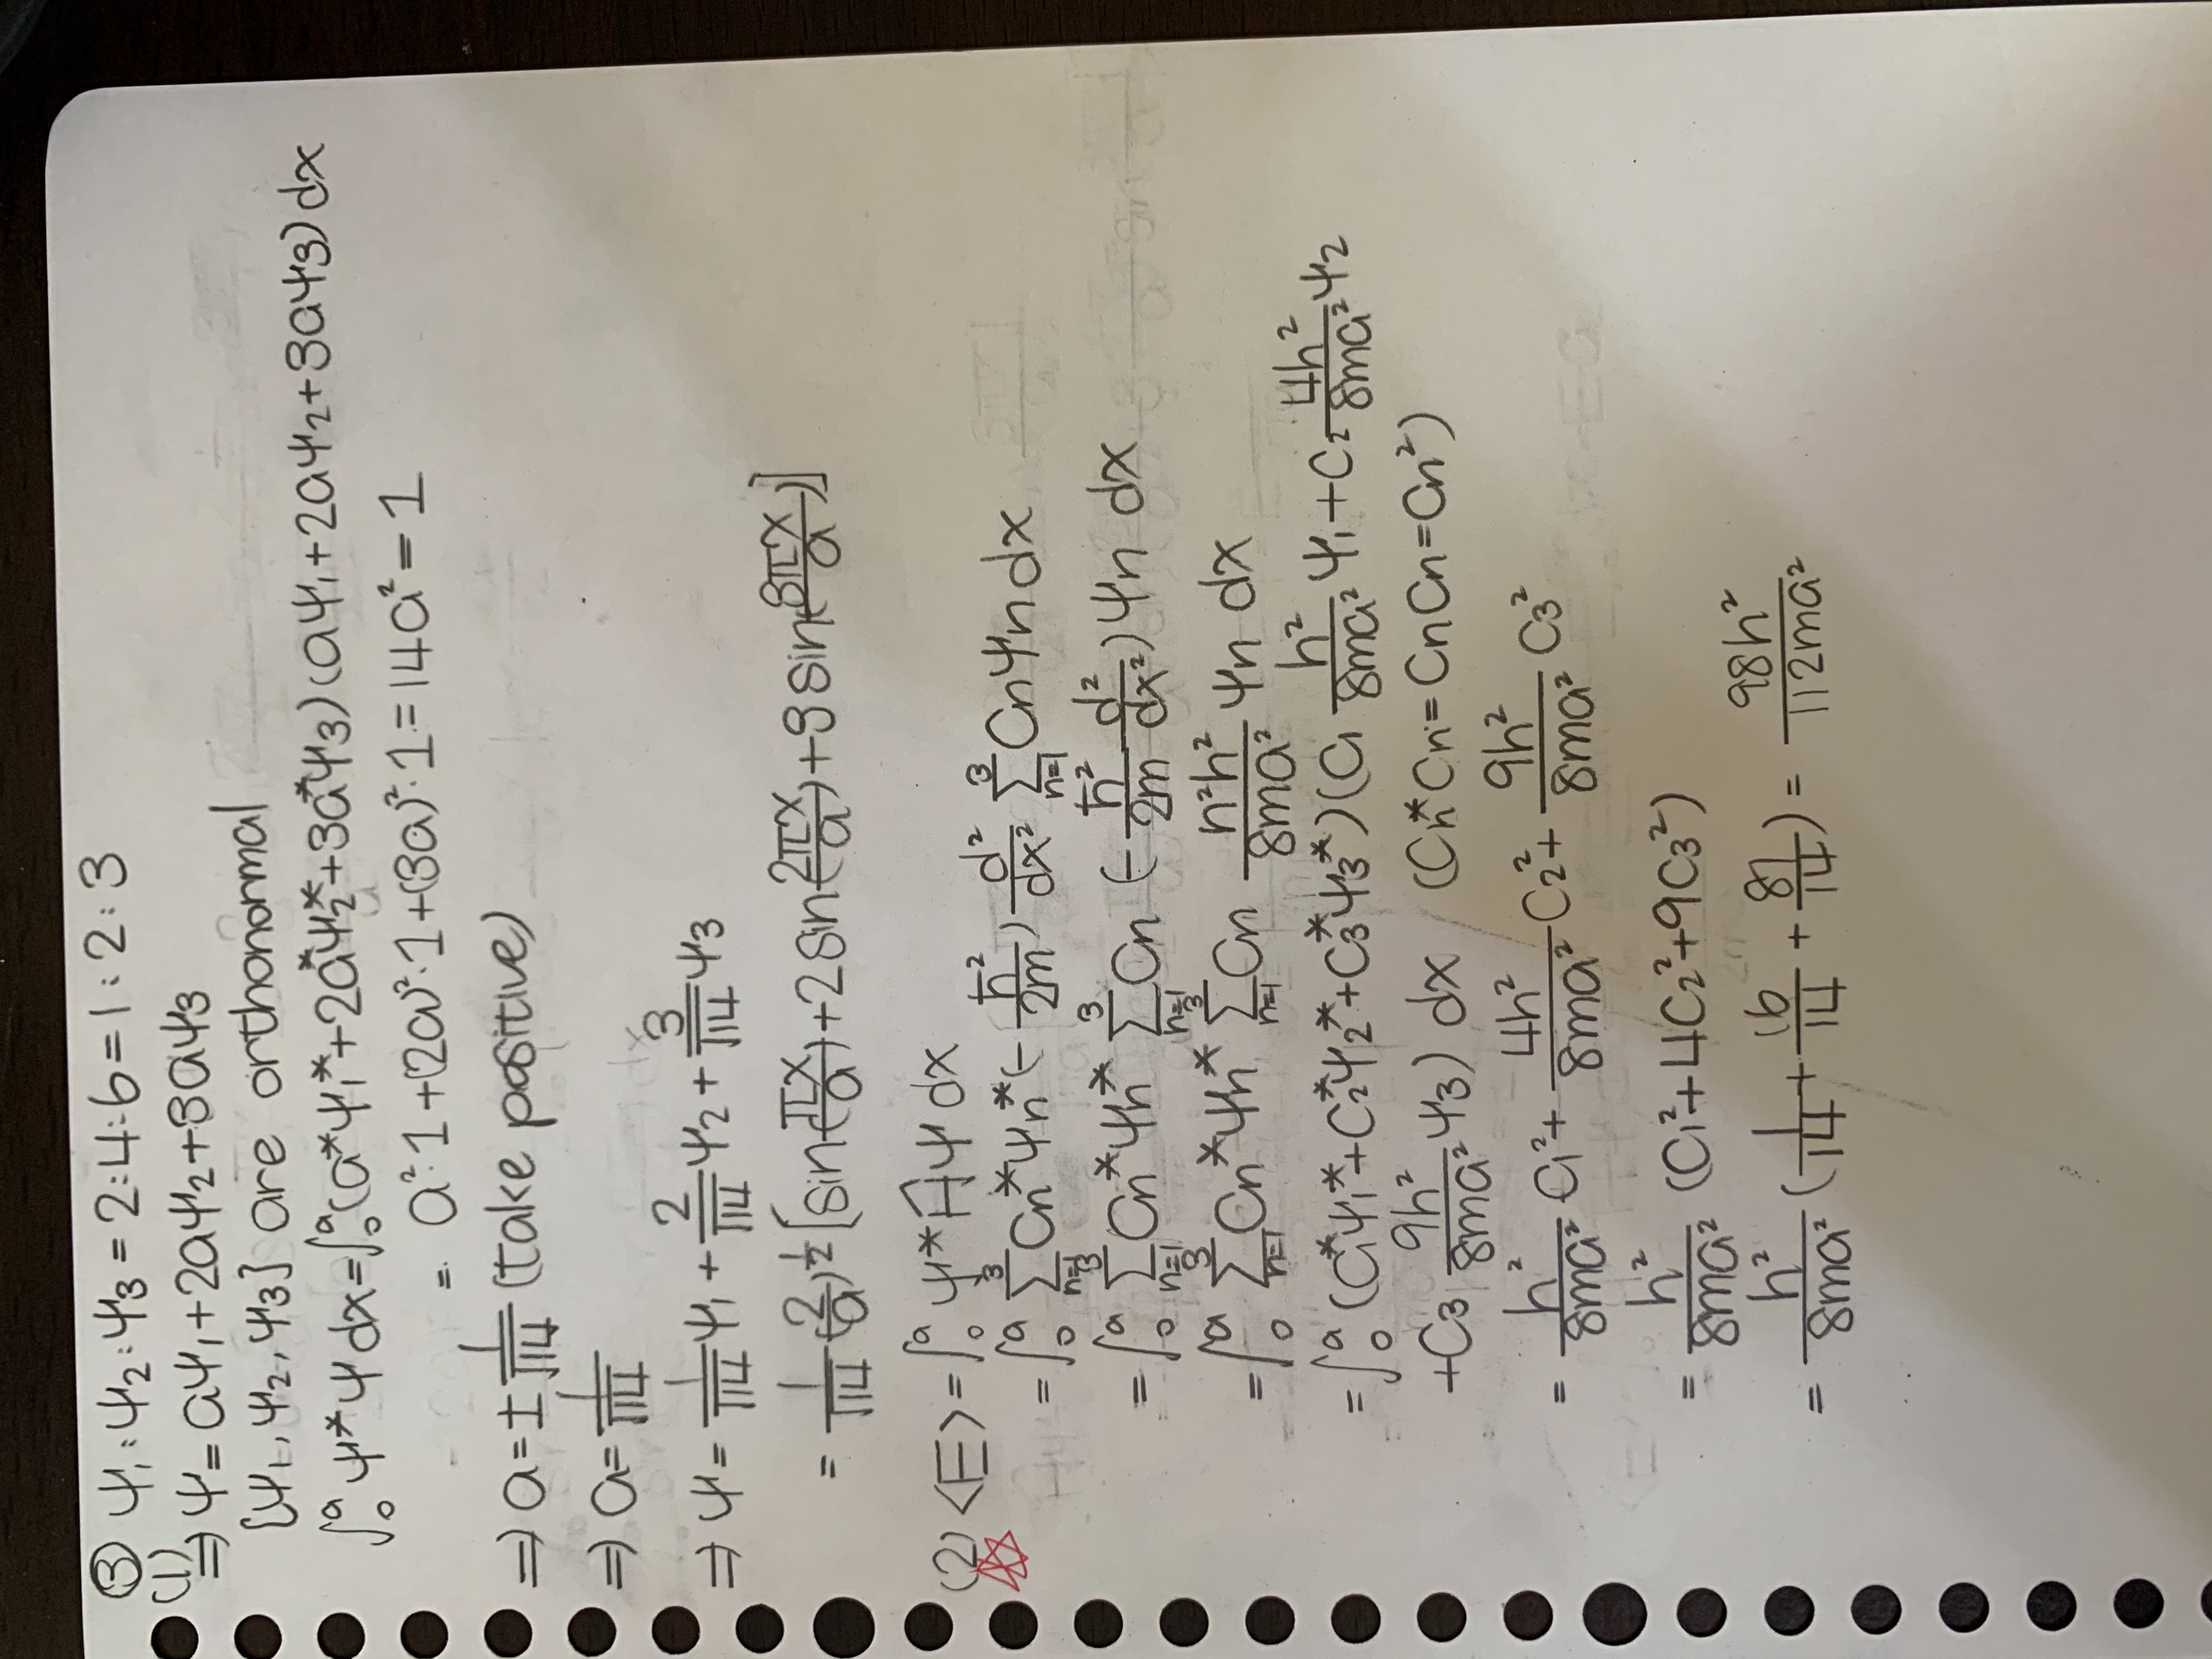 ③ ψ₁:ψ₂:ψ₃ = 2:4:6 = 1:2:3
(1)
⇒ ψ = aψ₁+2aψ₂+3aψ₃
{ψ₁,ψ₂,ψ₃} are orthonormal
∫₀ᵃ ψ*ψ dx = ∫₀ᵃ (a*ψ₁*+2a*ψ₂*+3a*ψ₃)(aψ₁+2aψ₂+3aψ₃) dx
= a²·1+(2a)²·1+(3a)²·1 = 14a² = 1
⇒ a = ± 1/√14 (take positive)
⇒ a = 1/√14
⇒ ψ = 1/√14 ψ₁ + 2/√14 ψ₂ + 3/√14 ψ₃
= 1/√14 (2/a)^(1/2) [sin(πx/a)+2sin(2πx/a)+3sin(3πx/a)]
(2) <E> = ∫₀ᵃ ψ*Ĥψ dx
= ∫₀ᵃ Σₙ₌₁³ Cn*ψn*(-ħ²/2m) d²/dx² Σₙ₌₁³ Cnψn dx
= ∫₀ᵃ Σₙ₌₁³ Cn*ψn* Σₙ₌₁³ Cn (-ħ²/2m d²/dx²) ψn dx
= ∫₀ᵃ Σₙ₌₁³ Cn*ψn* Σₙ₌₁³ Cn n²h²/8ma² ψn dx
= ∫₀ᵃ (C₁*ψ₁*+C₂*ψ₂*+C₃*ψ₃*)(C₁ h²/8ma² ψ₁+C₂ 4h²/8ma² ψ₂
+C₃ 9h²/8ma² ψ₃) dx (Cn*Cn=CnCn=Cn²)
= h²/8ma² C₁²+ 4h²/8ma² C₂²+ 9h²/8ma² C₃²
= h²/8ma² (C₁²+4C₂²+9C₃²)
= h²/8ma² (1/14 + 16/14 + 81/14) = 98h²/112ma²